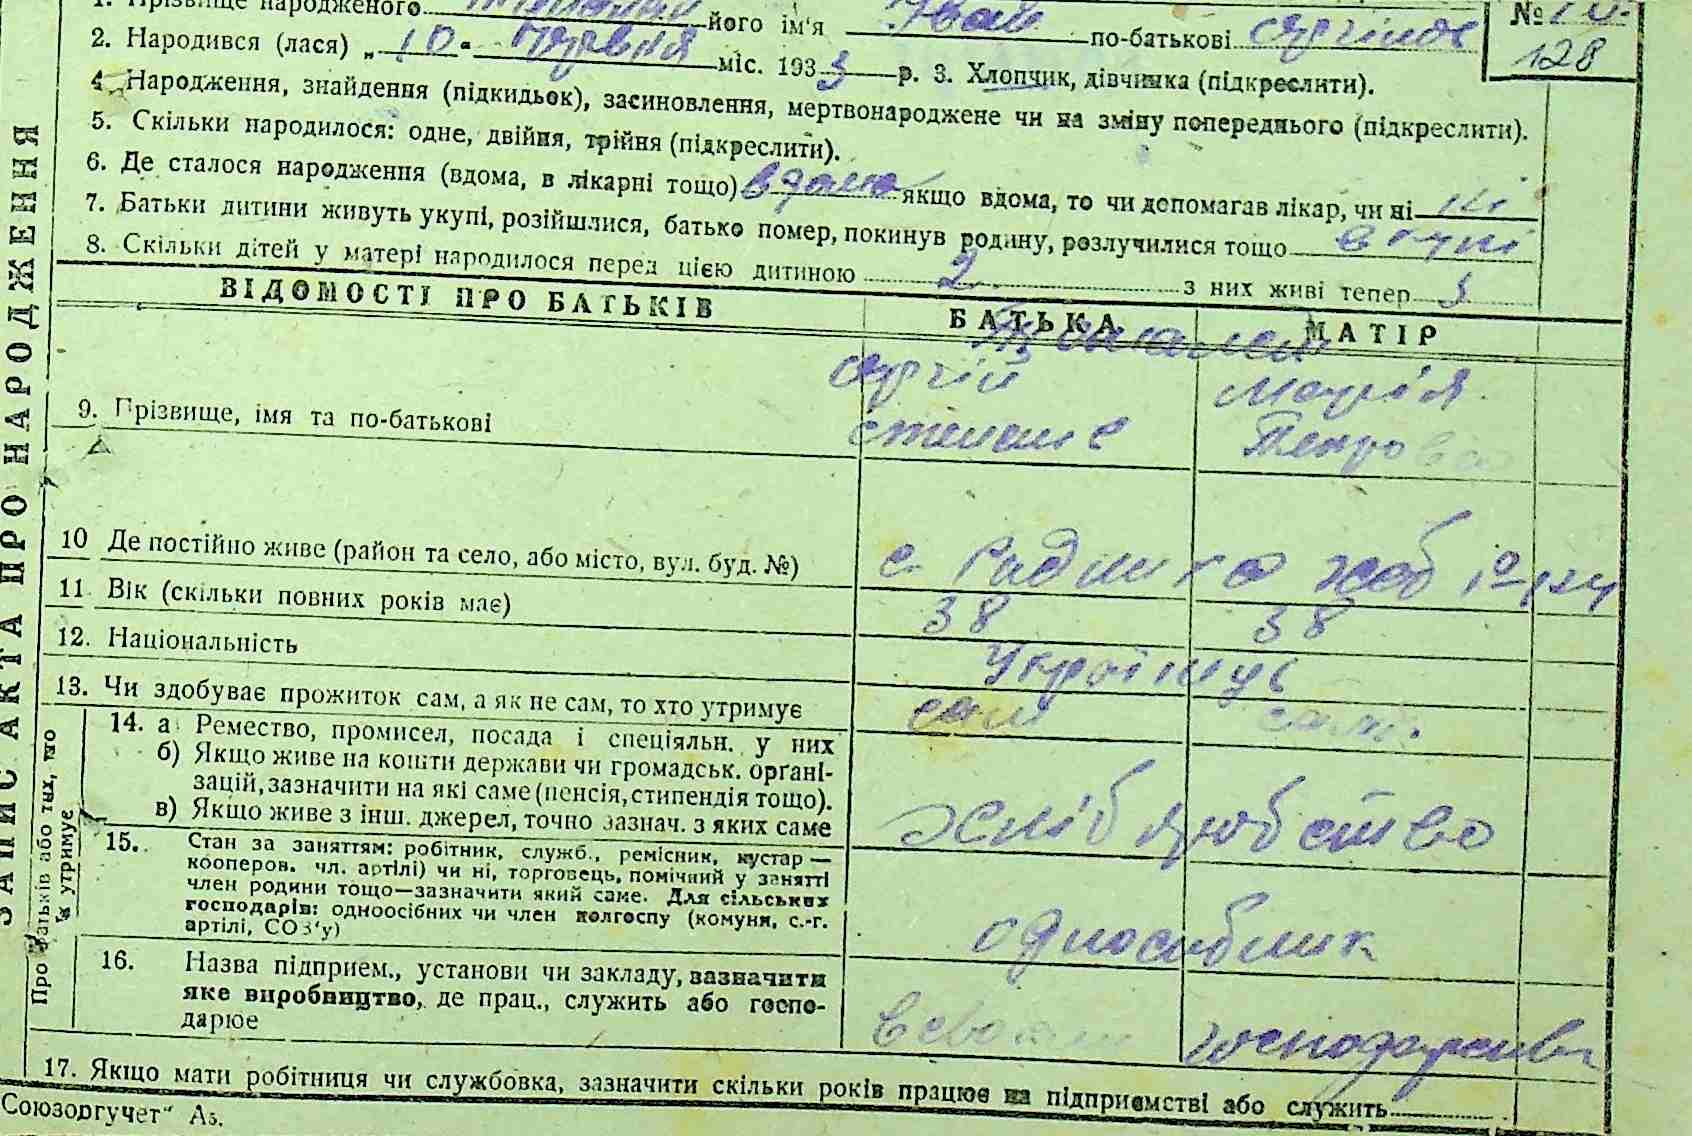 1. Прізвище народженого його ім'я Іван по-батькові Сергійов № 10.
2. Народився (лася) „ 10 " червня міс. 1933 р. 3. Хлопчик, дівчинка (підкреслити). 128
4. Народження, знайдення (підкидьок), засиновлення, мертвонароджене чи на зміну попереднього (підкреслити).
5. Скільки народилося: одне, двійня, трійня (підкреслити).
6. Де сталося народження (вдома, в лікарні тощо) вдома якщо вдома, то чи допомагав лікар, чи ні ні
7. Батьки дитини живуть укупі, розійшлися, батько помер, покинув родину, розлучилися тощо вкупі
8. Скільки дітей у матері народилося перед цією дитиною 2 з них живі тепер 3
ВІДОМОСТІ ПРО БАТЬКІВ БАТЬКА МАТІР
9. Прізвище, імя та по-батькові
Сергій Марія
Степанів Петровна
10 Де постійно живе (район та село, або місто, вул. буд. №) с.
11. Вік (скільки повних років має) 38 38
12. Національність Українці
13. Чи здобуває прожиток сам, а як не сам, то хто утримує сам сама
14. а Ремество, промисел, посада і спеціяльн. у них
б) Якщо живе на кошти держави чи громадськ. орґані-
зацій, зазначити на які саме (пенсія, стипендія тощо).
в) Якщо живе з інш. джерел, точно зазнач. з яких саме
хліборобство
15. Стан за заняттям: робітник, служб., ремісник, кустар —
кооперов. чл. артілі) чи ні, торговець, помічний у занятті
член родини тощо—зазначити який саме. Для сільських
господарів: одноосібних чи член колгоспу (комуня, с.-г.
артілі, СОЗ'у)
одноосібник
16. Назва підприєм., установи чи закладу, зазначити
яке виробництво, де прац., служить або госпо-
дарює
в своїм господарстві
17. Якщо мати робітниця чи службовка, зазначити скільки років працює на підприємстві або служить
Союзоргучет" Аз.
ЗАПИС АКТА ПРО НАРОДЖЕННЯ
Про батьків або тих, що
їх утримує